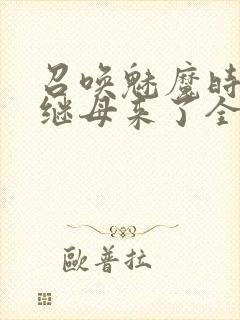 召唤魅魔时
继母来了全
歐普拉